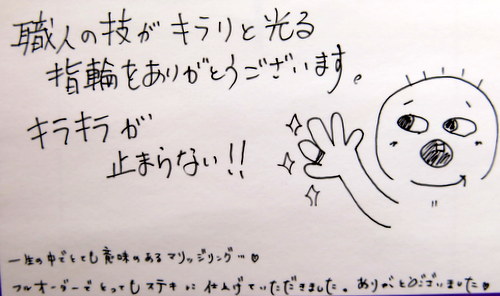 職人の技がキラリと光る
指輪をありがとうございます。
キラキラが
止まらない!!
一生の中でとても意味のあるマリッジリング…♡
フルオーダーでとってもステキに仕上げていただきました。ありがとうございました♡